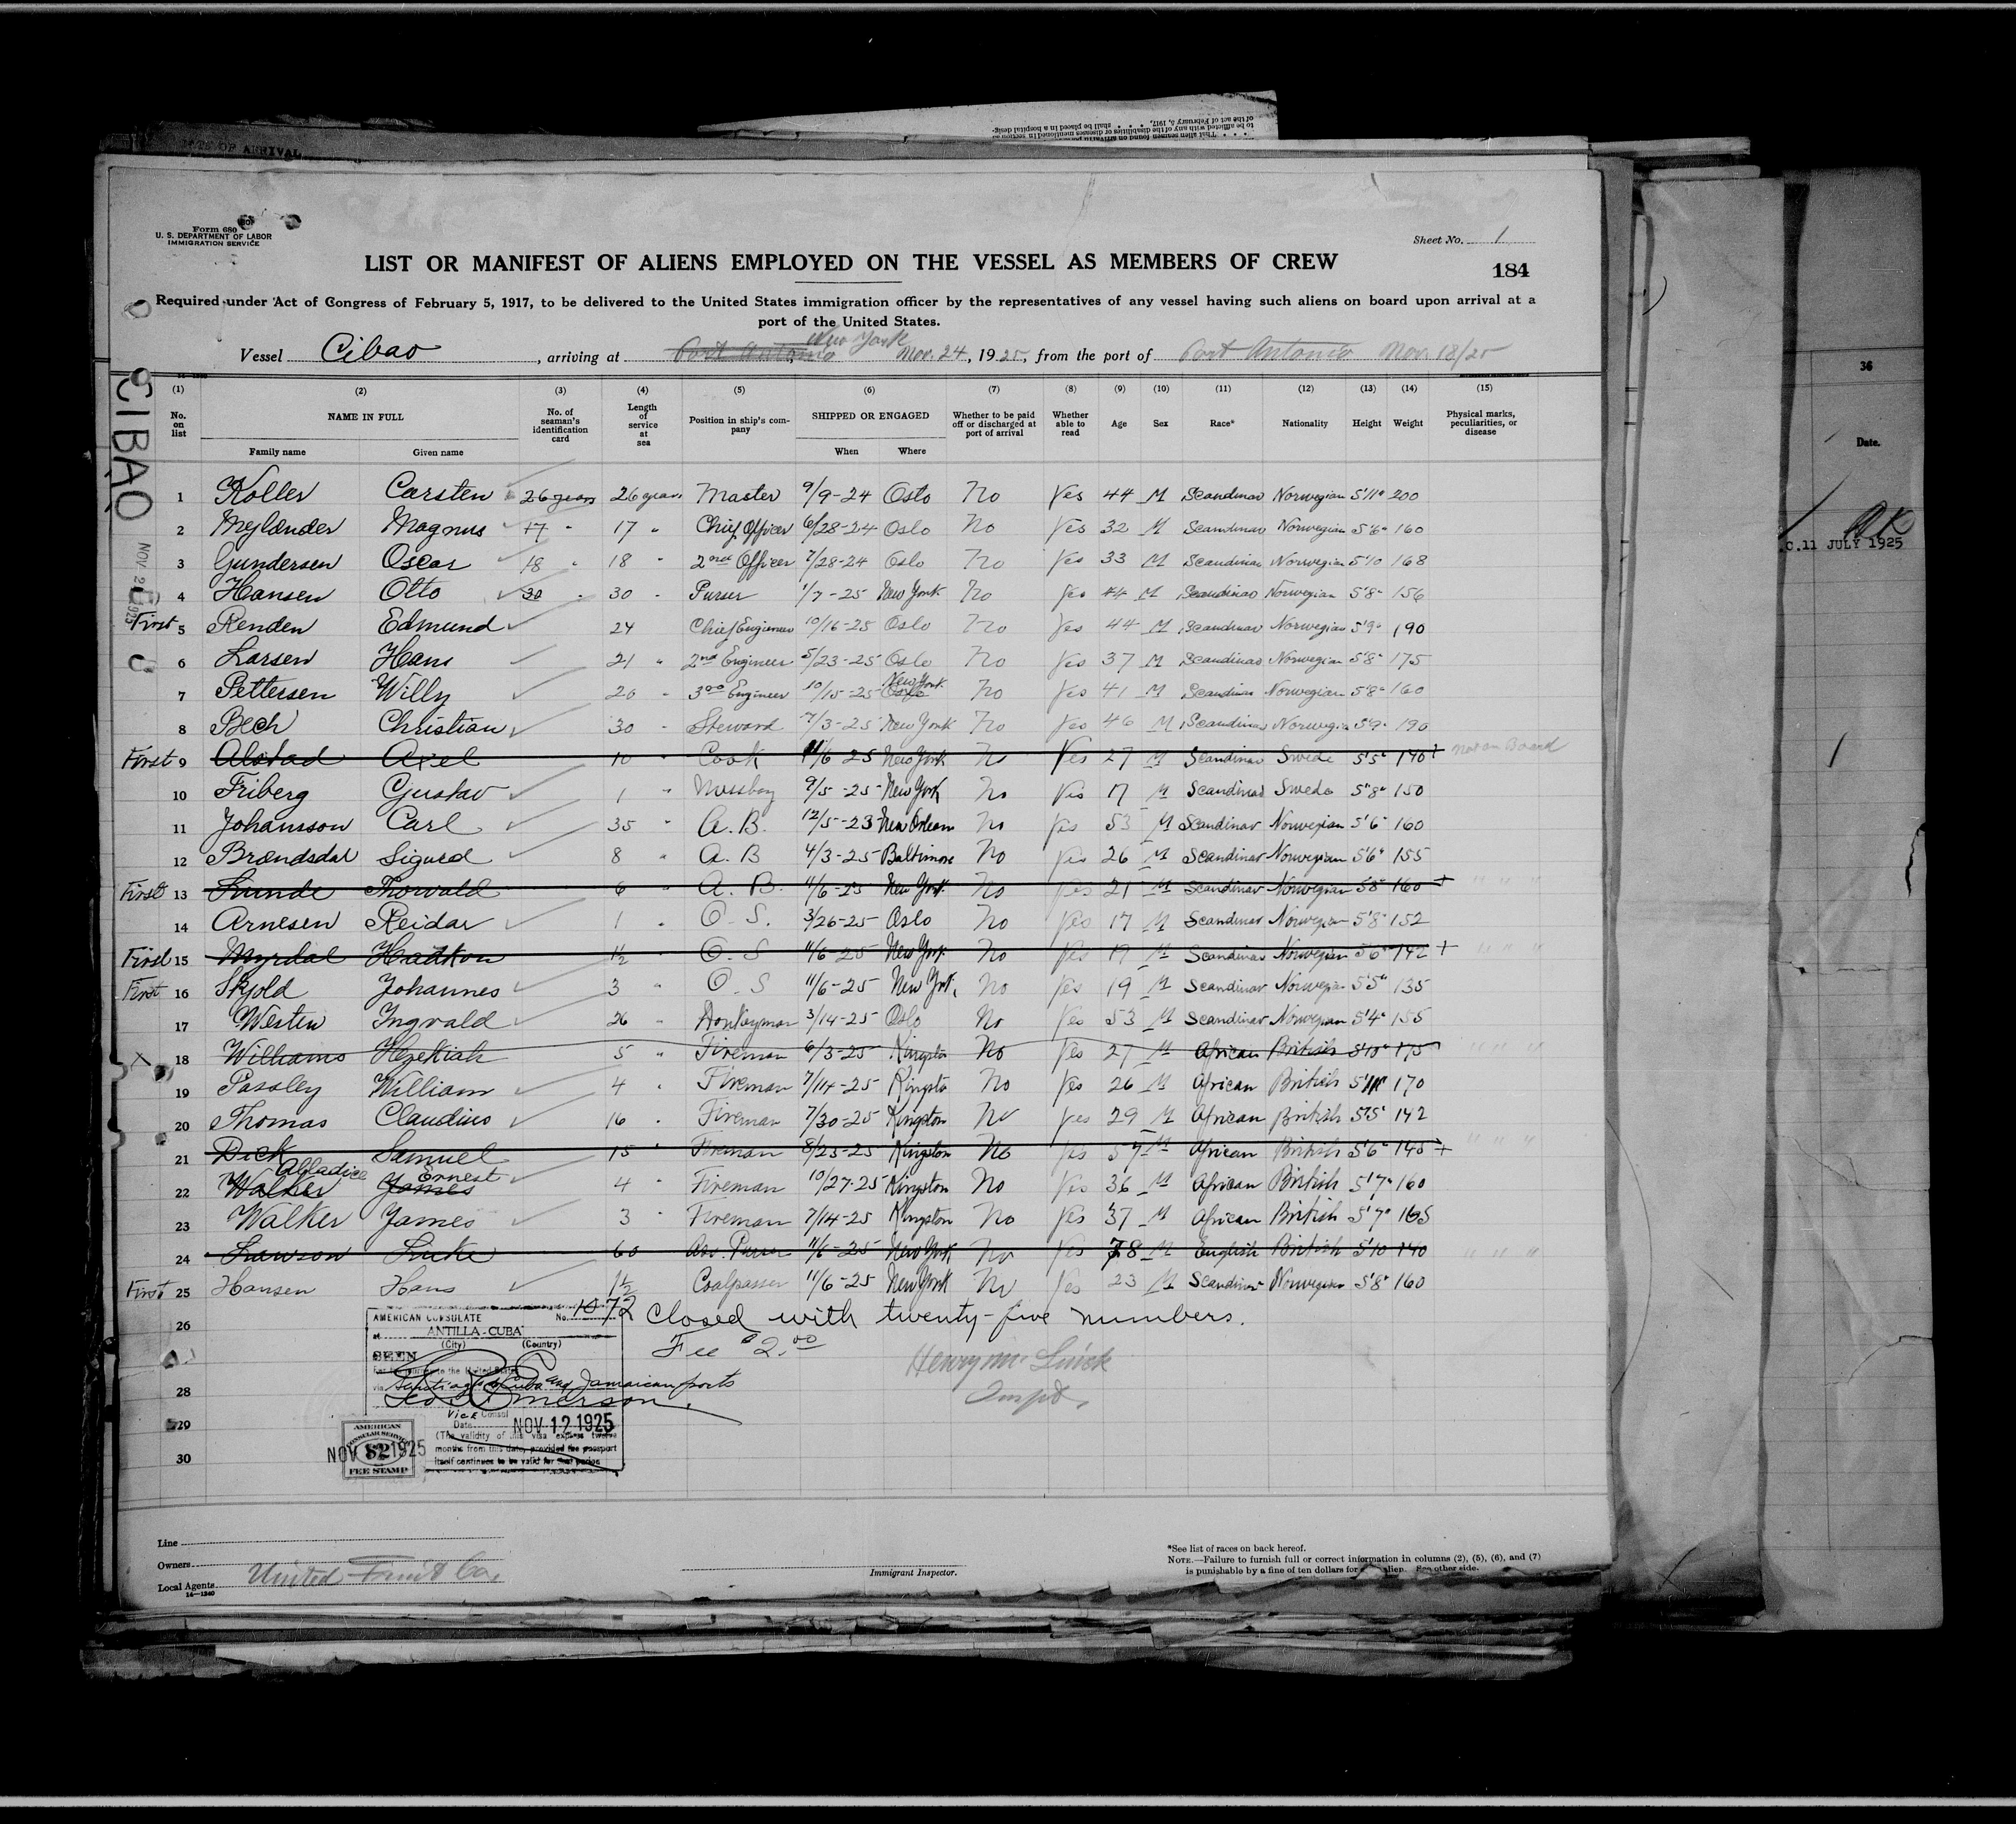 DATE OF ARRIVAL
Form 680
U. S. DEPARTMENT OF LABOR
IMMIGRATION SERVICE
Sheet No. 1
LIST OR MANIFEST OF ALIENS EMPLOYED ON THE VESSEL AS MEMBERS OF CREW
184
Required under Act of Congress of February 5, 1917, to be delivered to the United States immigration officer by the representatives of any vessel having such aliens on board upon arrival at a
port of the United States.
New York
Vessel Cibao, arriving at Port Antonio Nov. 24, 1925, from the port of Port Antonio Nov. 18/25
CIBAO
(1) (2) (3) (4) (5) (6) (7) (8) (9) (10) (11) (12) (13) (14) (15)
No. on list NAME IN FULL No. of seaman's identification card Length of service at sea Position in ship's company SHIPPED OR ENGAGED Whether to be paid off or discharged at port of arrival Whether able to read Age Sex Race* Nationality Height Weight Physical marks, peculiarities, or disease
Family name Given name When Where
1 Koller Carsten 26 years 26 years Master 9/9-24 Oslo No Yes 44 M Scandinav Norwegian 5'11" 200
2 Mejlænder Magnus 17 " 17 " Chief Officer 6/28-24 Oslo No Yes 32 M Scandinav Norwegian 5'6" 160
3 Gundersen Oscar 18 " 18 " 2nd Officer 7/28-24 Oslo No Yes 33 M Scandinav Norwegian 5'10 168
4 Hansen Otto 30 " 30 " Purser 1/7-25 New York No Yes 44 M Scandinav Norwegian 5'8" 156
First 5 Renden Edmund 24 Chief Engineer 10/16-25 Oslo No Yes 44 M Scandinav Norwegian 5'9" 190
6 Larsen Hans 21 " 2nd Engineer 5/23-25 Oslo No Yes 37 M Scandinav Norwegian 5'8" 175
7 Pettersen Willy 20 " 3rd Engineer 10/15-25 Oslo New York No Yes 41 M Scandinav Norwegian 5'8" 160
8 Bech Christian 30 " Steward 7/3-25 New York No Yes 46 M Scandinav Norwegian 5'9" 190
First 9 Alstad Axel 10 " Cook 11/6 25 New York No Yes 27 M Scandinav Swede 5'5" 140 + Not on Board
10 Friberg Gustav 1 " Messboy 9/5-25 New York No Yes 17 M Scandinav Swede 5'8" 150
11 Johansson Carl 35 " A.B. 12/5-23 New Orleans No Yes 53 M Scandinav Norwegian 5'6" 160
12 Brændsdal Sigurd 8 " A.B 4/3-25 Baltimore No Yes 26 M Scandinav Norwegian 5'6" 155
First 13 Lunde Thorvald 6 " A.B. 11/6-25 New York No Yes 21 M Scandinav Norwegian 5'8" 160 + " " "
14 Arnesen Reidar 1 " O.S. 3/26-25 Oslo No Yes 17 M Scandinav Norwegian 5'8" 152
First 15 Myrdal 1½ " O.S 11/6-25 New York No Yes 19 M Scandinav Norwegian 5'6" 142 + " " "
First 16 Skjold Johannes 3 " O.S 11/6-25 New York No Yes 19 M Scandinav Norwegian 5'5" 135
17 Westen Ingvald 26 " Donkeyman 3/14-25 Oslo No Yes 53 M Scandinav Norwegian 5'4" 155
X 18 Williams Hezekiah 5 " Fireman 6/3-25 Kingston No Yes 27 M African British 5'10" 175 " " "
19 Passley William 4 " Fireman 7/14-25 Kingston No Yes 26 M African British 5'11" 170
20 Thomas Claudius 16 " Fireman 7/30-25 Kingston No Yes 29 M African British 5'5" 142
21 Dick Samuel 15 " Fireman 8/25-25 Kingston No Yes 57 M African British 5'6" 145 + " " "
22 Walker James Ernest 4 " Fireman 10/27-25 Kingston No Yes 36 M African British 5'7" 160
23 Walker James 3 " Fireman 7/14-25 Kingston No Yes 37 M African British 5'7" 165
24 Lawson Luke 60 Ass. Purser 11/6-25 New York No Yes 78 M English British 5'10 140 " " "
First 25 Hansen Hans 1½ Coalpasser 11/6-25 New York No Yes 23 M Scandinav Norwegian 5'8" 160
26
28
29
30
Closed with twenty-five numbers.
Fee $2.00
Inspt.
AMERICAN CONSULATE No. 1072
at ANTILLA-CUBA
(City) (Country)
SEEN
For the journey to the United States
via Santiago de Cuba and Jamaican ports
Emerson
Vice Consul
Date NOV 12 1925
(The validity of this visa expires twelve
months from this date, provided the passport
itself continues to be valid for that period
AMERICAN
CONSULAR SERVICE
$2
FEE STAMP
NOV 12 1925
Line
Owners
Local Agents United Fruit Co.
14—1240
Immigrant Inspector.
*See list of races on back hereof.
NOTE.—Failure to furnish full or correct information in columns (2), (5), (6), and (7)
is punishable by a fine of ten dollars for alien. See other side.
36
Date.
OK
C.11 JULY 1925